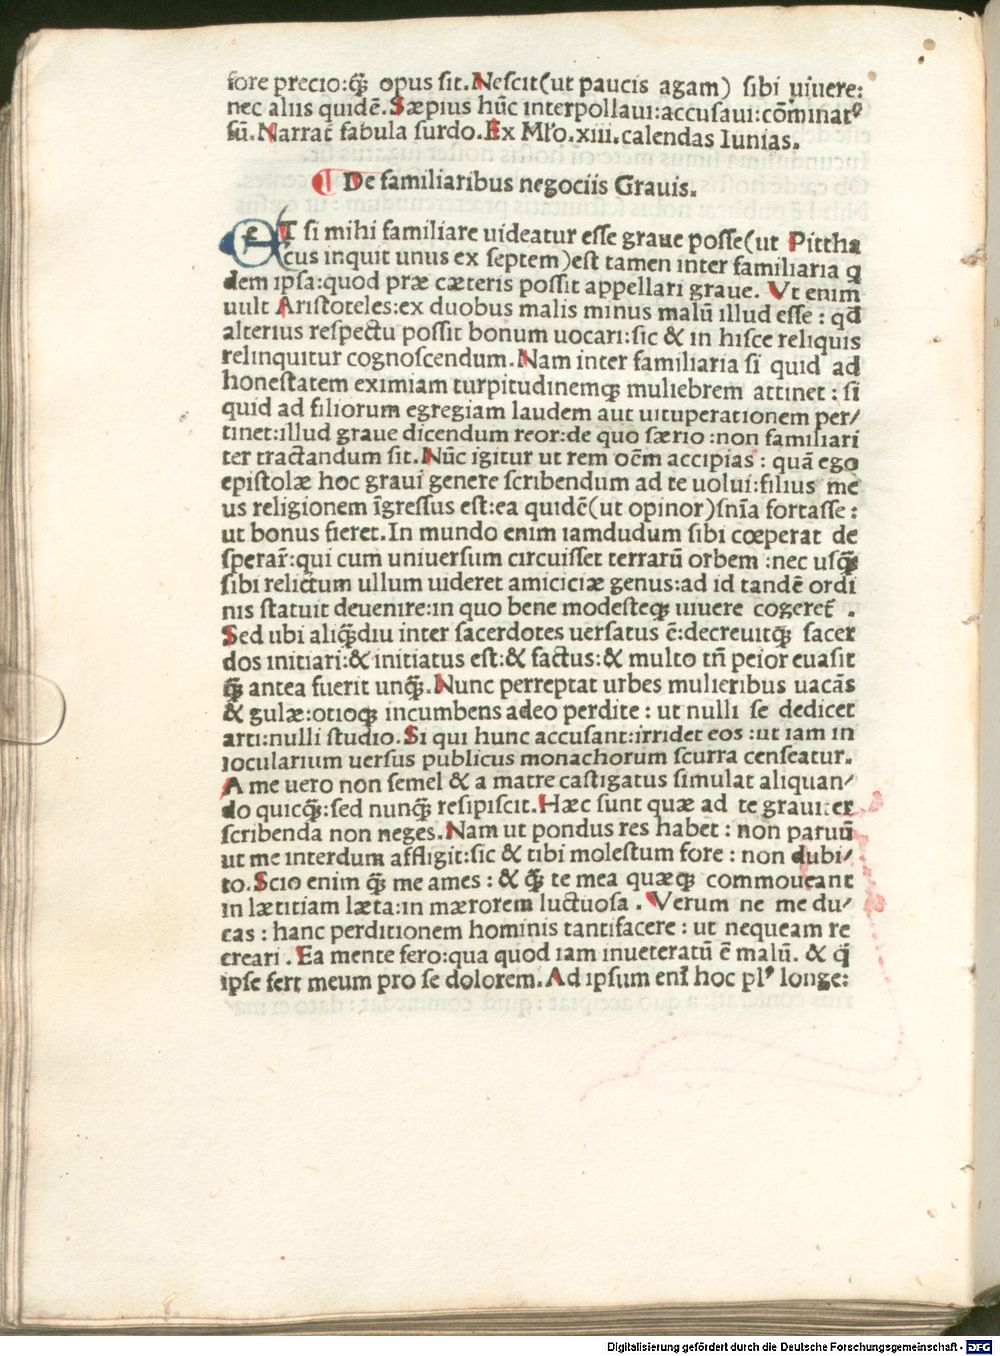 fore precio:q̄ꝫ opus sit. Nescit(ut paucis agam) sibi uiuere:
nec aliis quidē. Sæpius hūc interpollaui:accusaui:cōminatꝰ
sū. Narrat̄ fabula surdo. Ex Mľo. xiii. calendas Iunias.
¶ De familiaribus negociis Grauis.
eT si mihi familiare uideatur esse graue posse(ut Pittha
cus inquit unus ex septem)est tamen inter familiaria q
dem ipsa:quod præ cæteris possit appellari graue. Vt enim
uult Aristoteles:ex duobus malis minus malū illud esse : qđ
alterius respectu possit bonum uocari:sic & in hisce reliquis
relinquitur cognoscendum. Nam inter familiaria si quid ad
honestatem eximiam turpitudinemqꝫ muliebrem attinet : si
quid ad filiorum egregiam laudem aut uituperationem per/
tinet:illud graue dicendum reor:de quo særio :non familiari
ter tractandum sit. Nūc igitur ut rem oēm accipias : quā ego
epistolæ hoc graui genere scribendum ad te uolui:filius me
us religionem īgressus est:ea quidē(ut opinor)sn̄ia fortasse :
ut bonus fieret. In mundo enim iamdudum sibi cœperat de
sperar̄:qui cum uniuersum circuisset terrarū orbem :nec usq̄ꝫ
sibi relictum ullum uideret amiciciæ genus:ad id tandē ordi
nis statuit deuenire:in quo bene modesteqꝫ uiuere cogeret̄ .
Sed ubi aliq̄ꝫdiu inter sacerdotes uersatus ē:decreuitq̄ꝫ sacer
dos initiari:& initiatus est:& factus:& multo tn̄ peior euasit
q̄ꝫ antea fuerit unq̄ꝫ. Nunc perreptat urbes mulieribus uacās
& gulæ:otioqꝫ incumbens adeo perdite : ut nulli se dedicet
arti:nulli studio. Si qui hunc accusant:irridet eos :ut iam in
iocularium uersus publicus monachorum scurra censeatur.
A me uero non semel & a matre castigatus simulat aliquan/
do quicq̄ꝫ:sed nunq̄ꝫ resipiscit. Hæc sunt quæ ad te grauiter
scribenda non neges. Nam ut pondus res habet : non paruū
ut me interdum affligit:sic & tibi molestum fore : non dubi/
to. Scio enim q̄ꝫ me ames : & q̄ꝫ te mea quæqꝫ commoueant
in lætitiam læta:in mærorem luctuosa . Verum ne me du/
cas : hanc perditionem hominis tantifacere : ut nequeam re
creari . Ea mente fero:qua quod iam inueteratū ē malū. & q̄
ipse fert meum pro se dolorem. Ad ipsum eni hoc plꝰ longe:
Digitalisierung gefördert durch die Deutsche Forschungsgemeinschaft - DFG